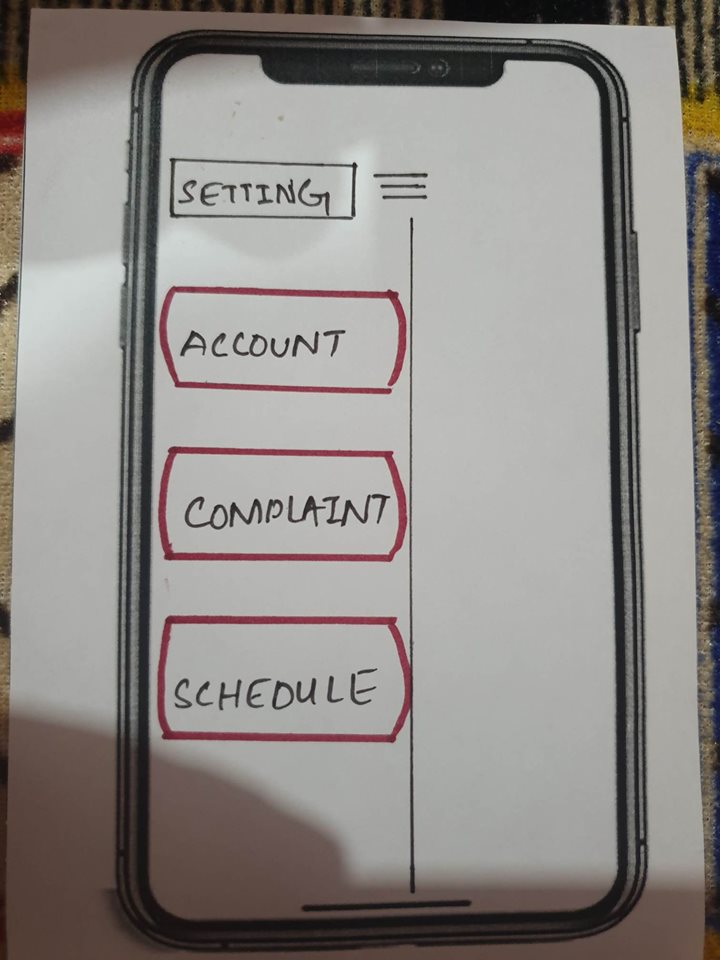 SETTING
ACCOUNT
COMPLAINT
SCHEDULE